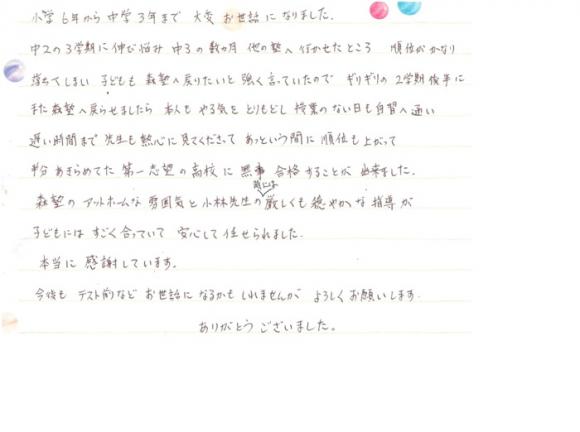 小学6年から中学3年まで 大変 お世話に なりました.
中2の3学期に伸び悩み 中3の数ヵ月 他の塾へ 行かせたところ 順位が かなり
落ちてしまい 子どもも 森塾へ戻りたいと 強く言っていたので ギリギリの 2学期後半に
また森塾へ戻らせましたら 本人も やる気を とりもどし 授業のない日も自習へ通い
遅い時間まで 先生も熱心に見てくださって あっという間に 順位も上がって
半分 あきらめてた 第一志望の高校に 無事 合格することが 出来ました.
森塾の アットホームな 雰囲気と小林先生の時には厳しくも 穏やかな 指導が
子どもには すごく合っていて 安心して任せられました.
本当に 感謝しています.
今後も テスト前など お世話に なるかもしれませんが よろしくお願いします.
ありがとう ございました。